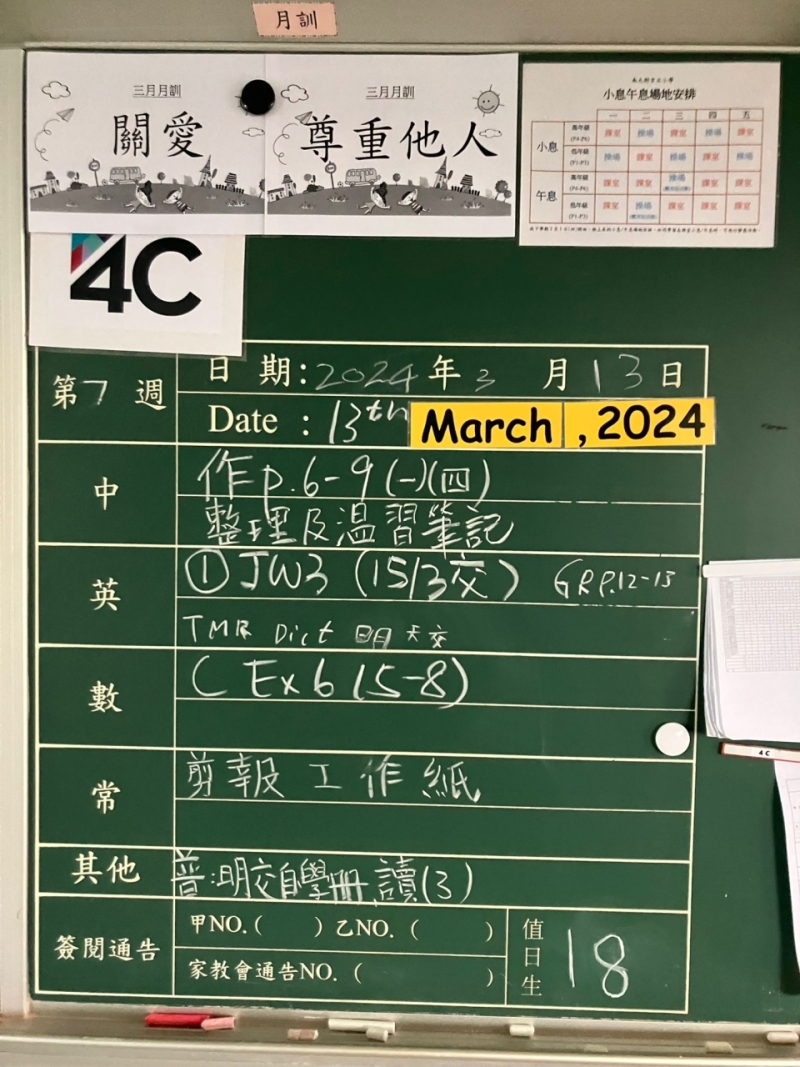 月訓
三月月訓
關愛
三月月訓
尊重他人
小息午息場地安排
一 二 三 四 五
小息 高年級 (P.4-P.6) 課室 操場 課室 操場 課室
低年級 (P.1-P.3) 操場 課室 操場 課室 操場
午息 高年級 (P.4-P.6) 課室 課室 操場 課室 課室
低年級 (P.1-P.3) 課室 操場 課室 課室 課室
4C
第7週 日期:2024年3月13日
Date : 13th March , 2024
中 作p.6-9(一)(四)
整理及温習筆記
英 ①JW3 (15/3交) GR P.12-13
TMR Dict 明天交
數 C Ex 6 (5-8)
常 剪報工作紙
其他 普:明交自學冊,讀(3)
簽閱通告 甲NO.( ) 乙NO.( )
家教會通告NO.( )
值日生 18
4C